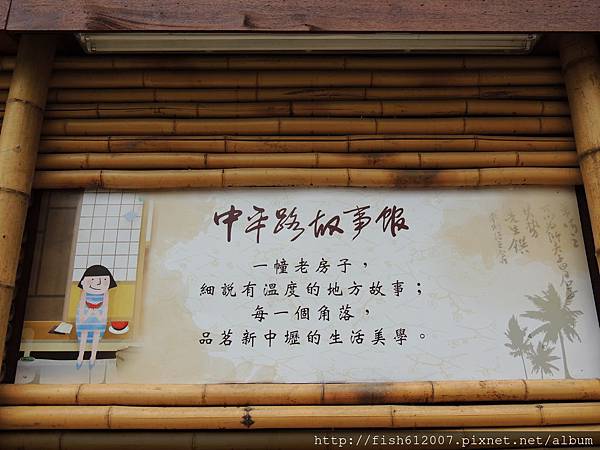 中平路故事館
一幢老房子，
細說有溫度的地方故事；
每一個角落，
品茗新中壢的生活美學。
http://fish612007.pixnet.net/album